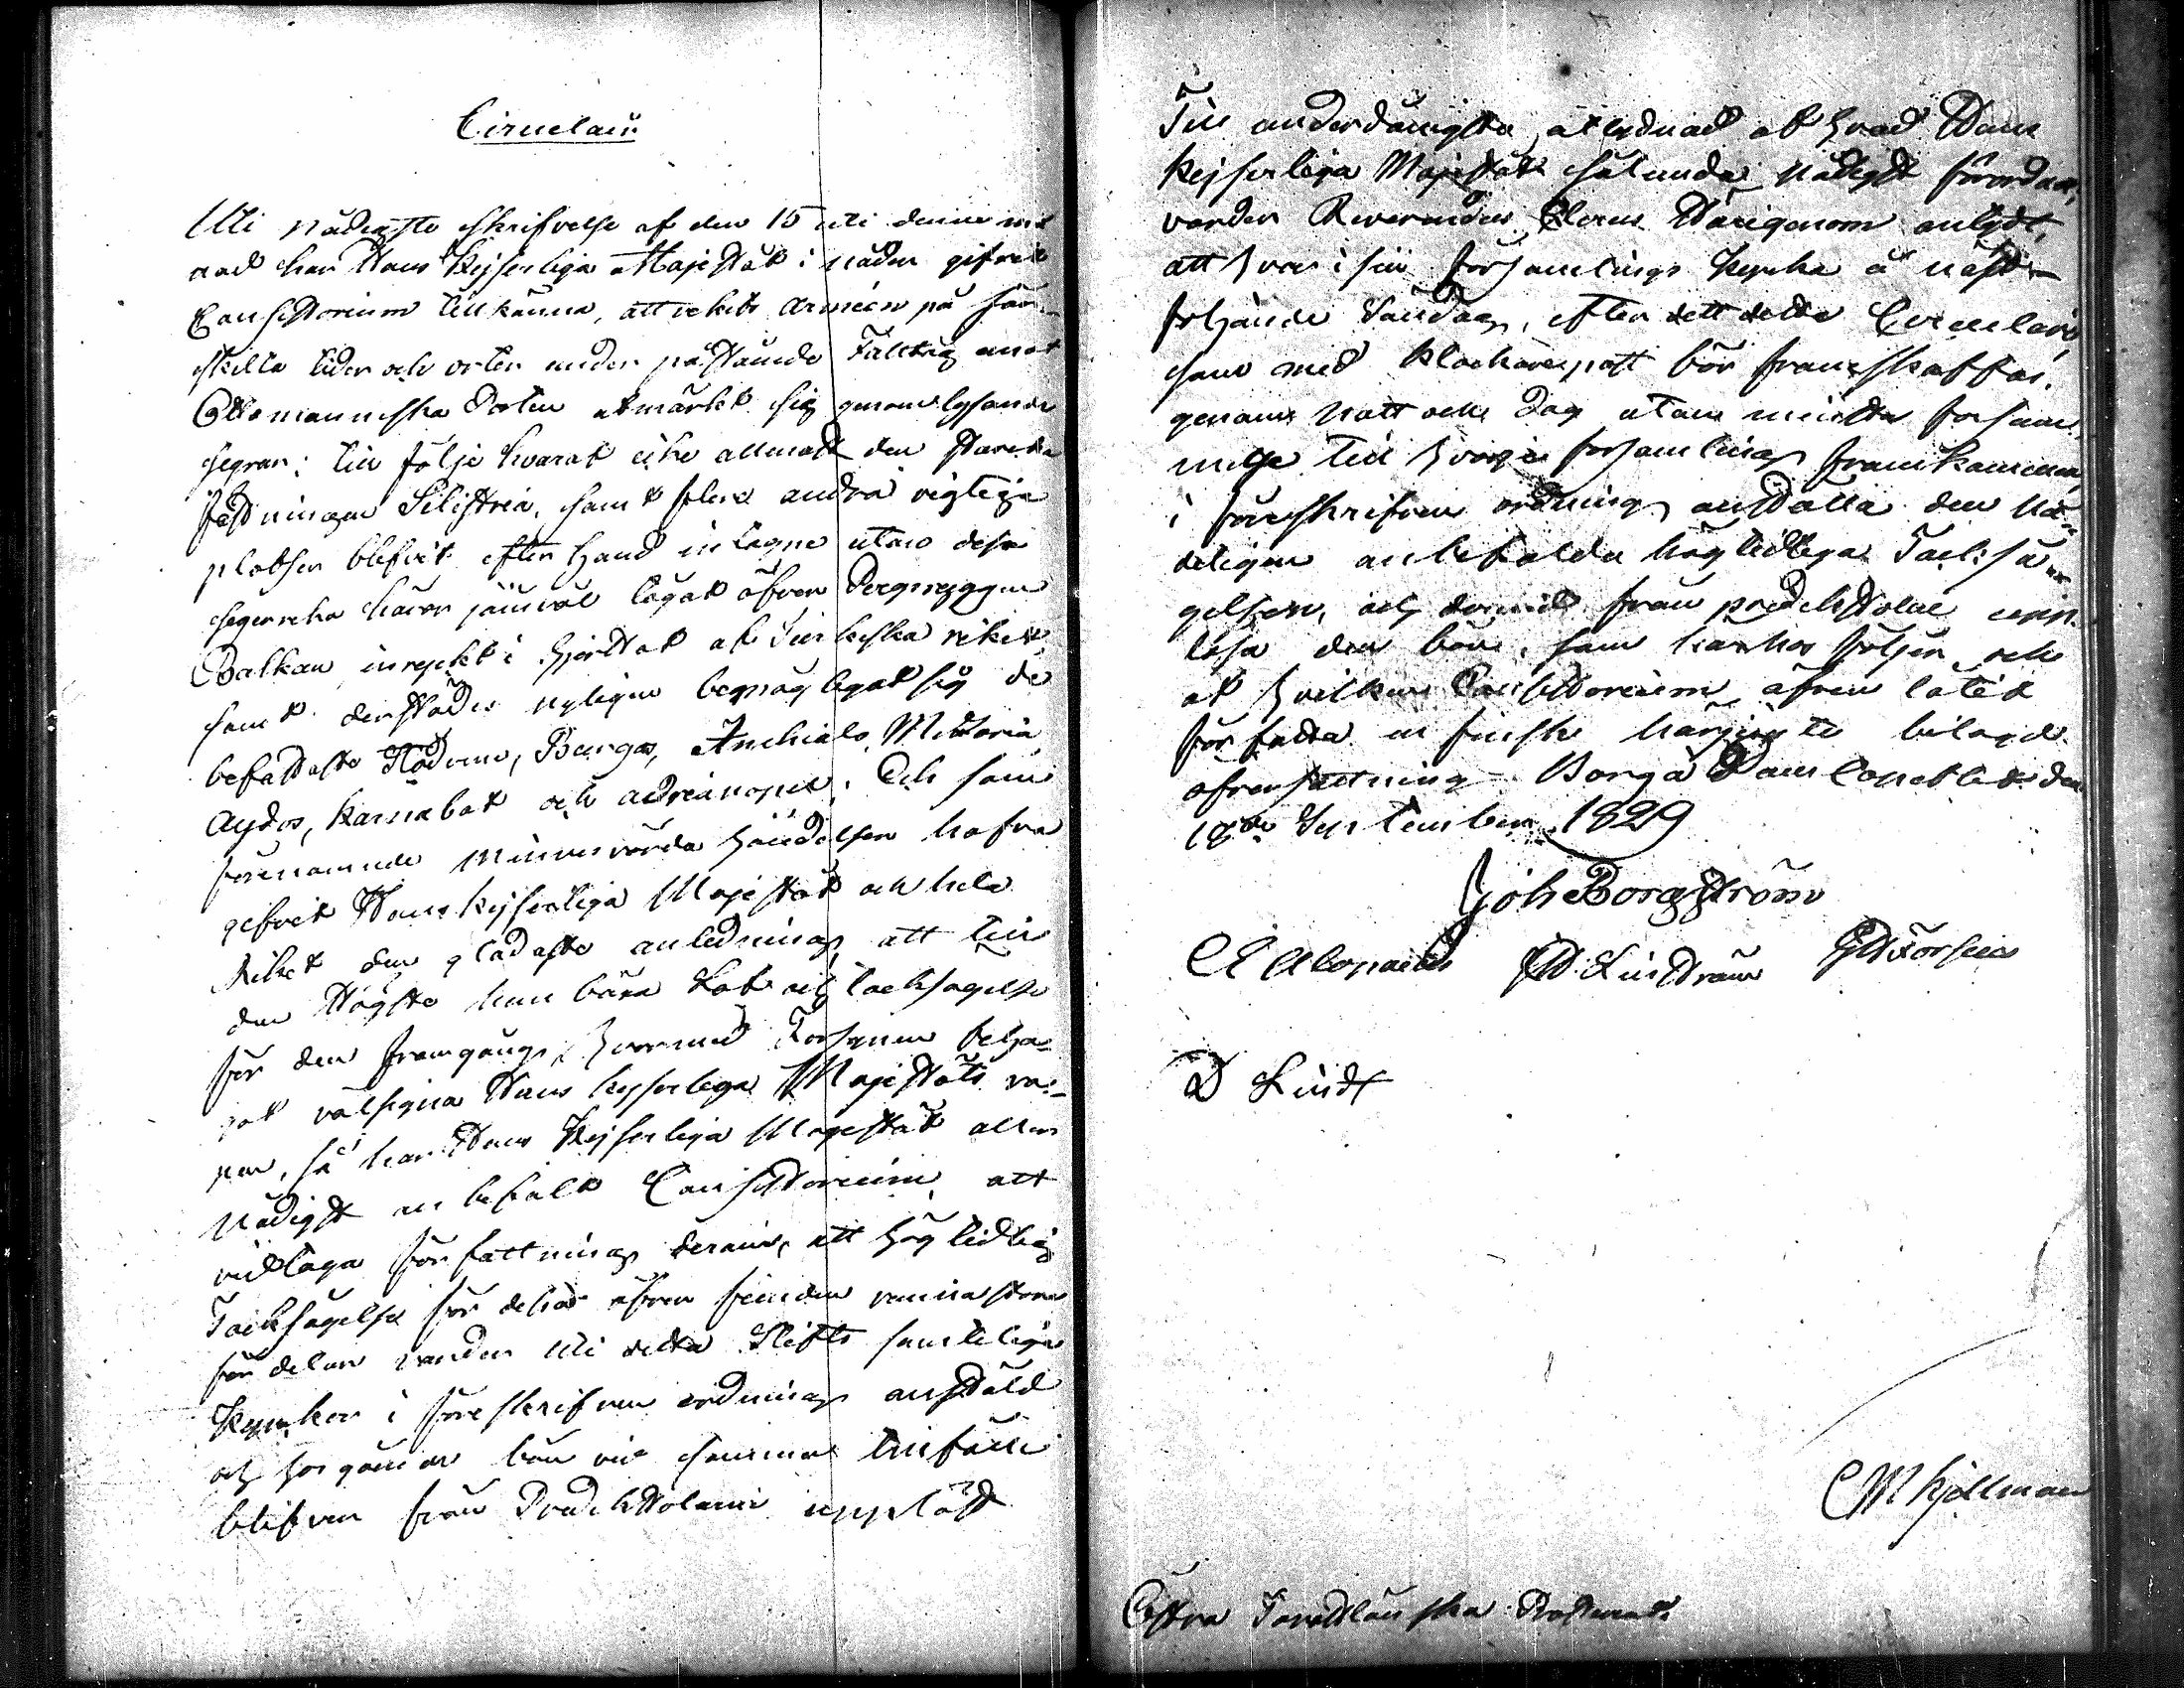 Circulair
Uti nådigste skrifvelse af den 15 uti denne må
nad har Hans Kejserliga Majestät i nåder gifvit
Consistorium tillkänna, att rikets Arméer på sär-
skilta tider och orter under påstående Fälttåg emot
Ottomanniska Porten utmärkt sig genom lysande
segrar; till följe hvaraf icke allenast den starka
fästningen Silistria, samt flere andra vigtiga
platser blefvit efter hand intagne utan desse
segerrika härer jämväl tågat öfver Bergsryggen
Balkan inryckt i hjertat af Turkiska riket,
samt derstädes nyligen bemägtigat sig de
befästaste städerne, Burgas, Anchialo, Missivria,
Aydos, Karnabat och Adrianopel. Och som
förenämnde minnesvärda händelser hafva
gifvit Hans Kejserliga Majestät och hela
Riket den gladaste anledning att till
den Högste hembära lof och tacksägelse
för den framgång, hvarmed Försynen beha-
gat välsigna Hans Kejserliga Majestäts va-
pen, så har Hans Kejserliga Majestät aller
nådigst anbefalt Consistorium, att
vidtaga författning derom, att högtidlig
Tacksägelse för dessa öfver fienden vunna stora
fördelar varder uti detta Stifts samtelige
Kyrkor i föreskrifven ordning anstäld
och hosgående bön vid samma tillfälle
blifver från Predikstolarne uppläst
Till underdånigste åtlydnad af hvad Hans
Kejserliga Majestät sålunda nådigst förordnat,
varder Reverendus Clerus Härigenom anlydt,
att hvar i sin församlings Kyrka å näst-
följande Söndag, efter det detta Circulair
som med klockarepost bör framskaffas,
genom natt och dag utan minsta försum-
melse till hvarje församling framkommer,
i föreskrifven ordning anställa den nå-
deligen anbefalda högtidliga Tacksä-
gelsen, och dermed från predikstolen upp-
läsa den bön, som härhos följer och
af hvilken Consistorium äfven låtit
författa en finsk härjämte bilagd
öfversättning Borgå Dom Capitlet den
18de September 1829
Joh Borgström
C Alopaeus
Lindström
Forsius
D Lindh
C M Kjellman
Östra Tavastländska Prosteriet